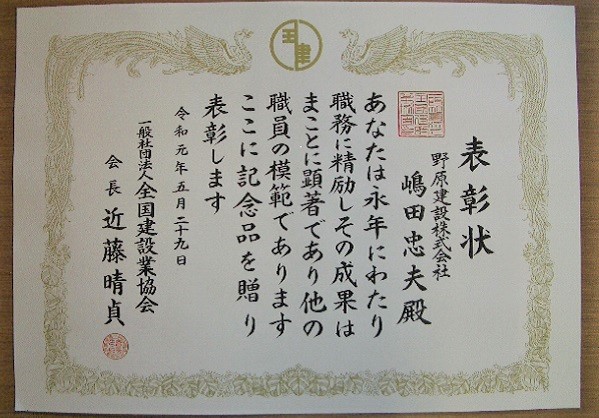 表彰状
野原建設株式会社
嶋田忠夫殿
あなたは永年にわたり
職務に精励しその成果は
まことに顕著であり他の
職員の模範であります
ここに記念品を贈り
表彰します
令和元年五月二十九日
一般社団法人全国建設業協会
会長 近藤晴貞